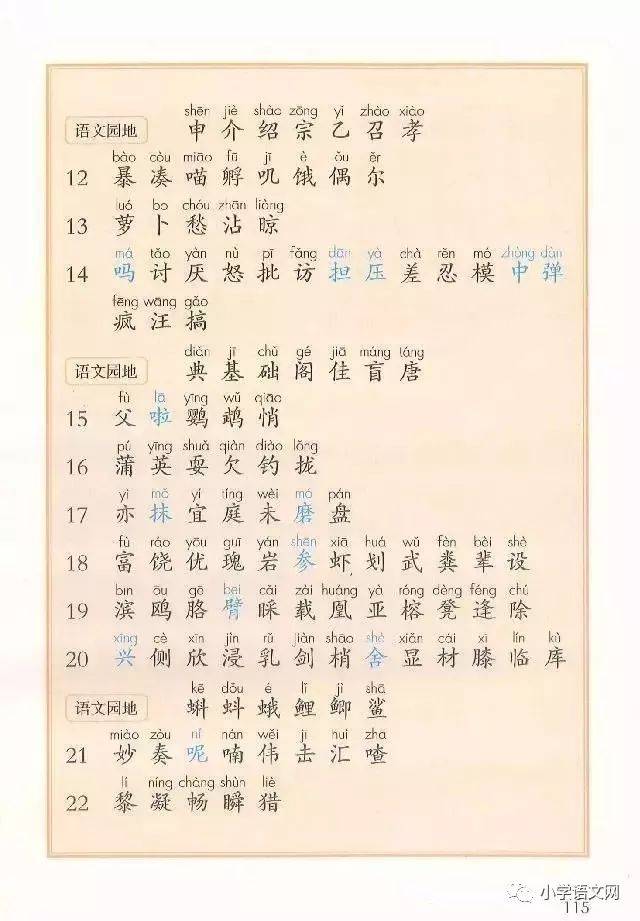 shēn jiè shào zōng yǐ zhào xiào
语文园地 申 介 绍 宗 乙 召 孝
bào còu miāo fū jī è ǒu ěr
12 暴 凑 喵 孵 叽 饿 偶 尔
luó bo chóu zhān liàng
13 萝 卜 愁 沾 晾
má tǎo yàn nù pī fǎng dān yà chà rěn mó zhòng dàn
14 吗 讨 厌 怒 批 访 担 压 差 忍 模 中 弹
fēng wāng gǎo
疯 汪 搞
diǎn jī chǔ gé jiā máng táng
语文园地 典 基 础 阁 佳 盲 唐
fù lā yīng wǔ qiāo
15 父 啦 鹦 鹉 悄
pú yīng shuǎ qiàn diào lǒng
16 蒲 英 耍 欠 钓 拢
yì mǒ yí tíng wèi mó pán
17 亦 抹 宜 庭 未 磨 盘
fù ráo yōu guī yán shēn xiā huá wǔ fèn bèi shè
18 富 饶 优 瑰 岩 参 虾 划 武 粪 辈 设
bīn ōu gē bei cǎi zài huáng yà róng dèng féng chú
19 滨 鸥 胳 臂 睬 载 凰 亚 榕 凳 逢 除
xīng cè xīn jìn rǔ jiàn shāo shè xiǎn cái xī lín kù
20 兴 侧 欣 浸 乳 剑 梢 舍 显 材 膝 临 库
kē dǒu é lǐ jì shā
语文园地 蝌 蚪 蛾 鲤 鲫 鲨
miào zòu ní nán wěi jī huì zha
21 妙 奏 呢 喃 伟 击 汇 喳
lí níng chàng shùn liè
22 黎 凝 畅 瞬 猎
小学语文网
115